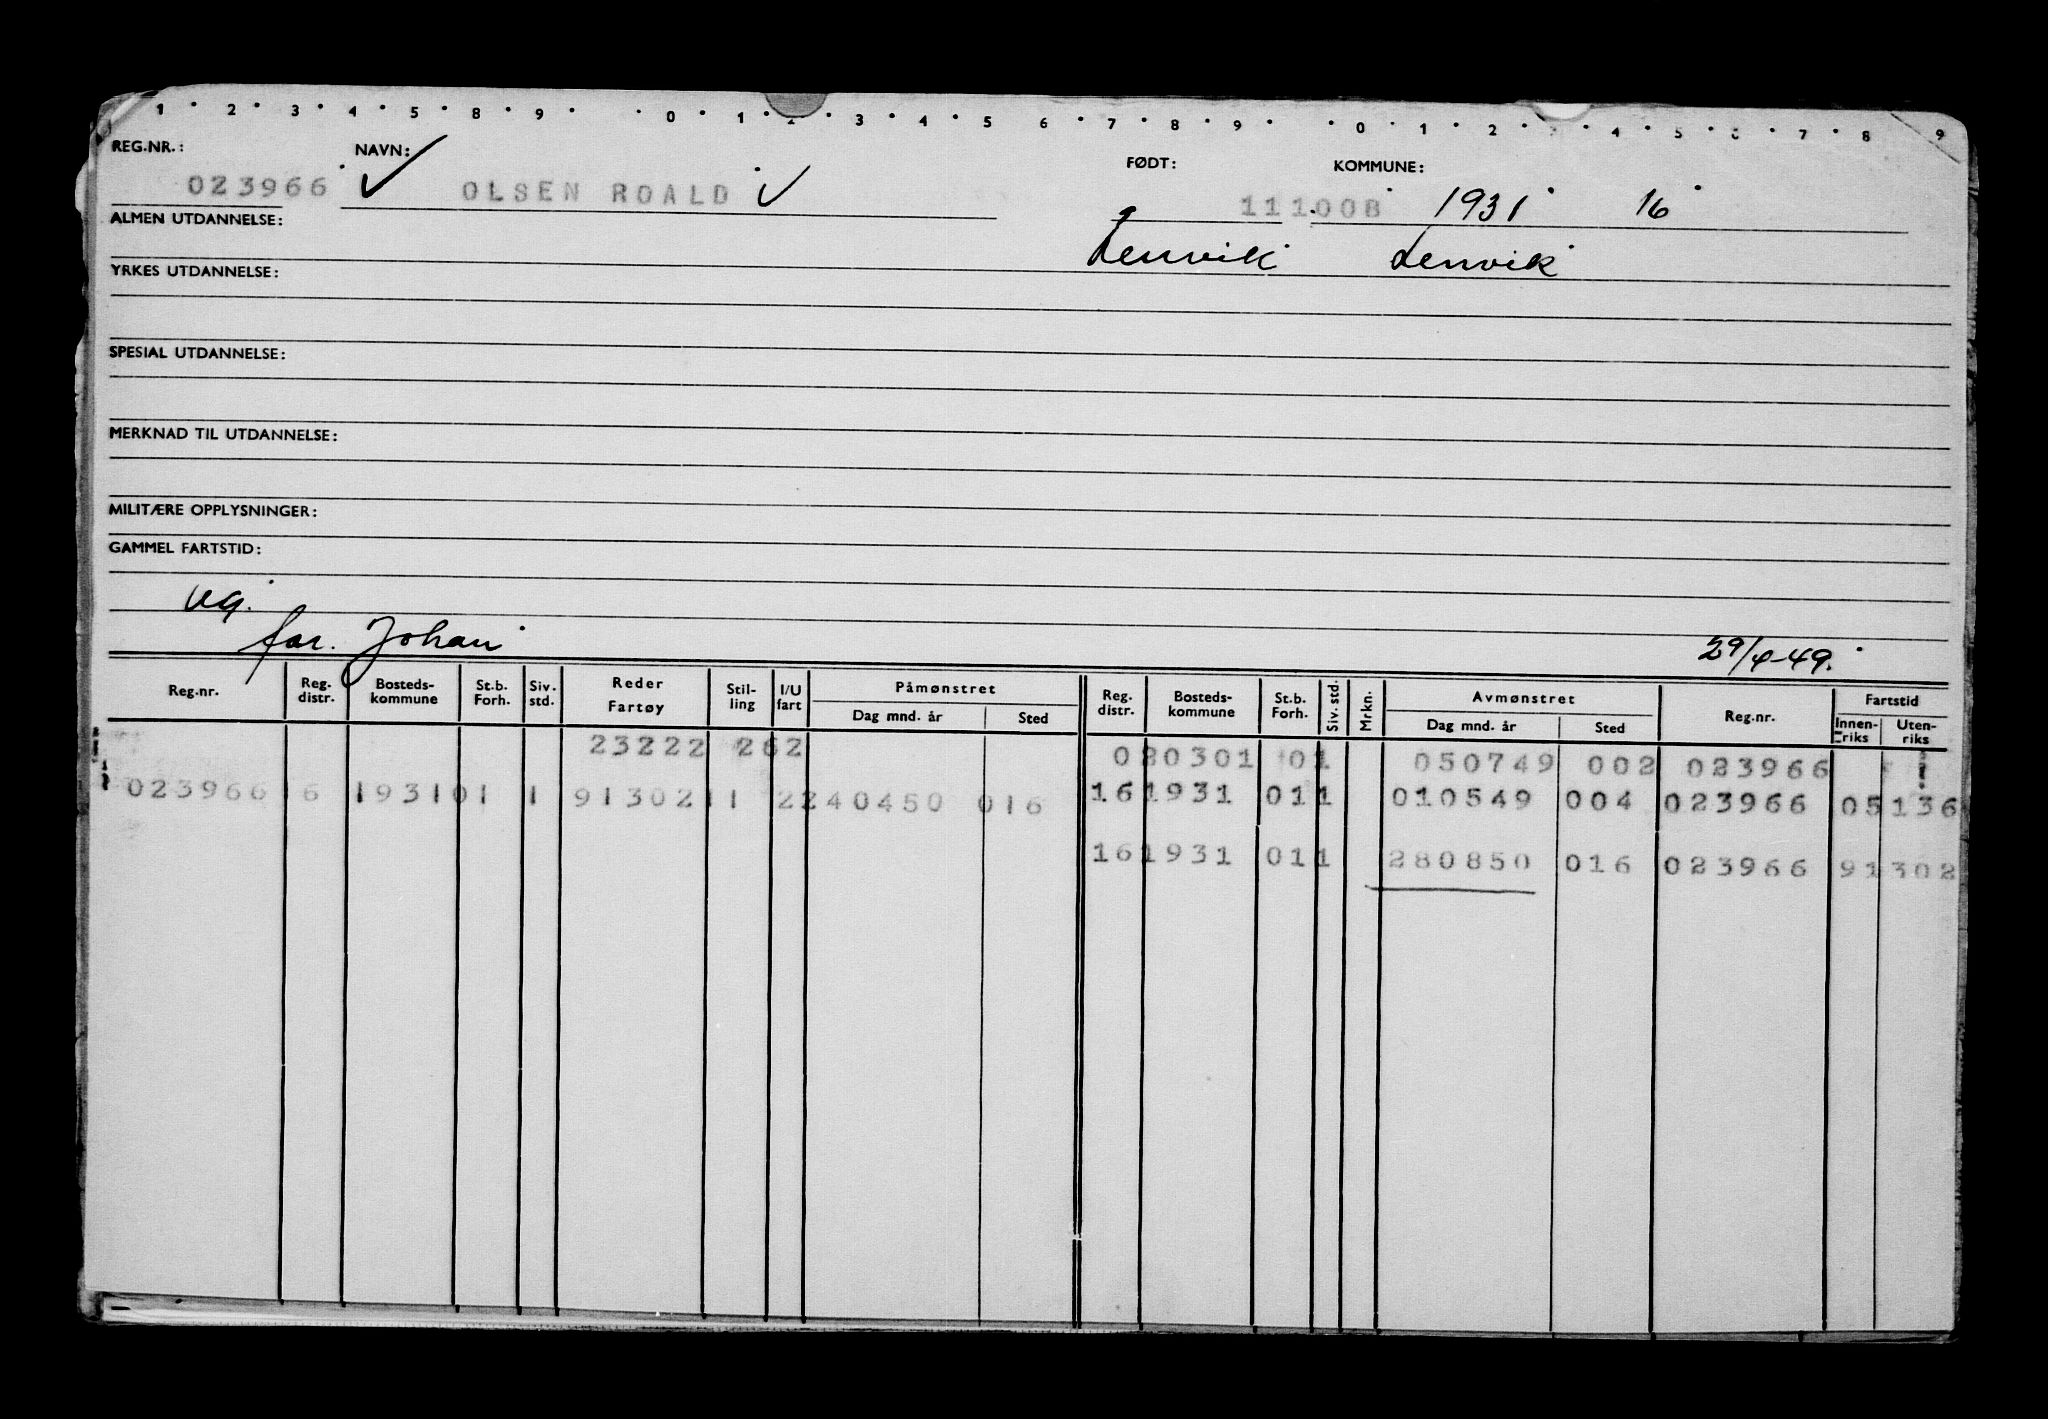 1 2 3 4 5 8 9 0 1 2 3 4 5 6 7 8 9 0 1 2 3 4 5 6 7 8 9
REG.NR.: NAVN: FØDT: KOMMUNE:
023966 OLSEN ROALD 111008 1931 16
ALMEN UTDANNELSE: Lenvik Lenvik
YRKES UTDANNELSE:
SPESIAL UTDANNELSE:
MERKNAD TIL UTDANNELSE:
MILITÆRE OPPLYSNINGER:
GAMMEL FARTSTID:
ug.
far. Johan 29/4-49.
Reg.nr. Reg. distr. Bosteds-kommune St.b. Forh. Siv. std. Reder Fartøy Stil-ling I/U fart Påmønstret Dag mnd. år Sted Reg. distr. Bosteds-kommune St.b. Forh. Siv. std. Mrkn. Avmønstret Dag mnd. år Sted Reg.nr. Fartstid Innen-riks Uten-riks
23222 262 080301 01 050749 002 023966
023966 6 1931 01 1 91302 11 2240450 016 161931 011 010549 004 023966 05136
161931 011 280850 016 023966 91302